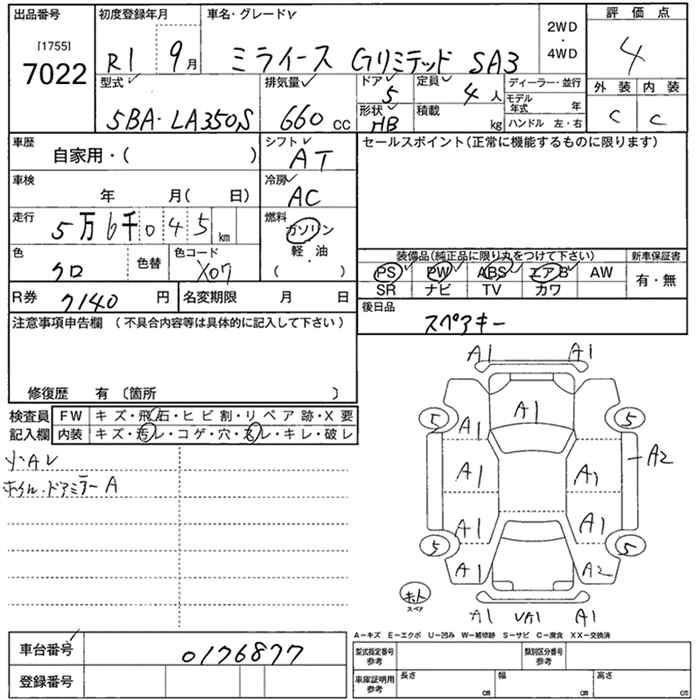 出品番号 初度登録年月 車名・グレード 2WD・4WD 評価点
[1755]
7022
R1 9月 ミライース Gリミテッド SA3 4
型式 排気量 ドア 定員 ディーラー・並行 外装 内装
5BA-LA350S 660 cc 5 4人 モデル年式 年 C C
形状 積載 ハンドル 左・右
HB kg
車歴 自家用・( ) シフト AT セールスポイント(正常に機能するものに限ります)
車検 年 月( 日) 冷房 AC
走行 5万6千045km 燃料 ガソリン
軽・油
( )
色 クロ 色替 色コード X07
装備品(純正品に限り丸をつけて下さい) 新車保証書
PS PW ABS エアB AW 有・無
SR ナビ TV カワ
R券 7140円 名変期限 月 日 後日品
スペアキー
注意事項申告欄 (不具合内容等は具体的に記入して下さい)
修復歴 有 〔箇所 〕
検査員 FW キズ・飛石・ヒビ割・リペア跡・X要
記入欄 内装 キズ・汚レ・コゲ・穴・スレ・キレ・破レ
小AU
ホイル・ドアミラーA
A1 A1
A1
5 A1 5
A1 A1 A2
A1 A1
5 5
A1 A2
ホト
スペア
A1 UA1 A1
A-キズ E-エクボ U-凹み W-補修跡 S-サビ C-腐食 XX-交換済
車台番号 0176877
型式指定番号 参考 類別区分番号 参考
登録番号
車庫証明用 参考 長さ cm 幅 cm 高さ cm